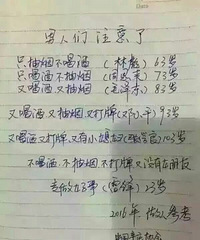 男人们注意了
只抽烟不喝酒 (林彪) 63岁
只喝酒不抽烟 (周恩来) 73岁
又喝酒又抽烟 (毛泽东) 83岁
又喝酒又抽烟又打牌(邓小平) 93岁
又喝酒又打牌,又有小媳妇(张学良)103岁
不喝酒不抽烟不打牌又没有女朋友
(雷锋) 23岁
2016年 做人参考